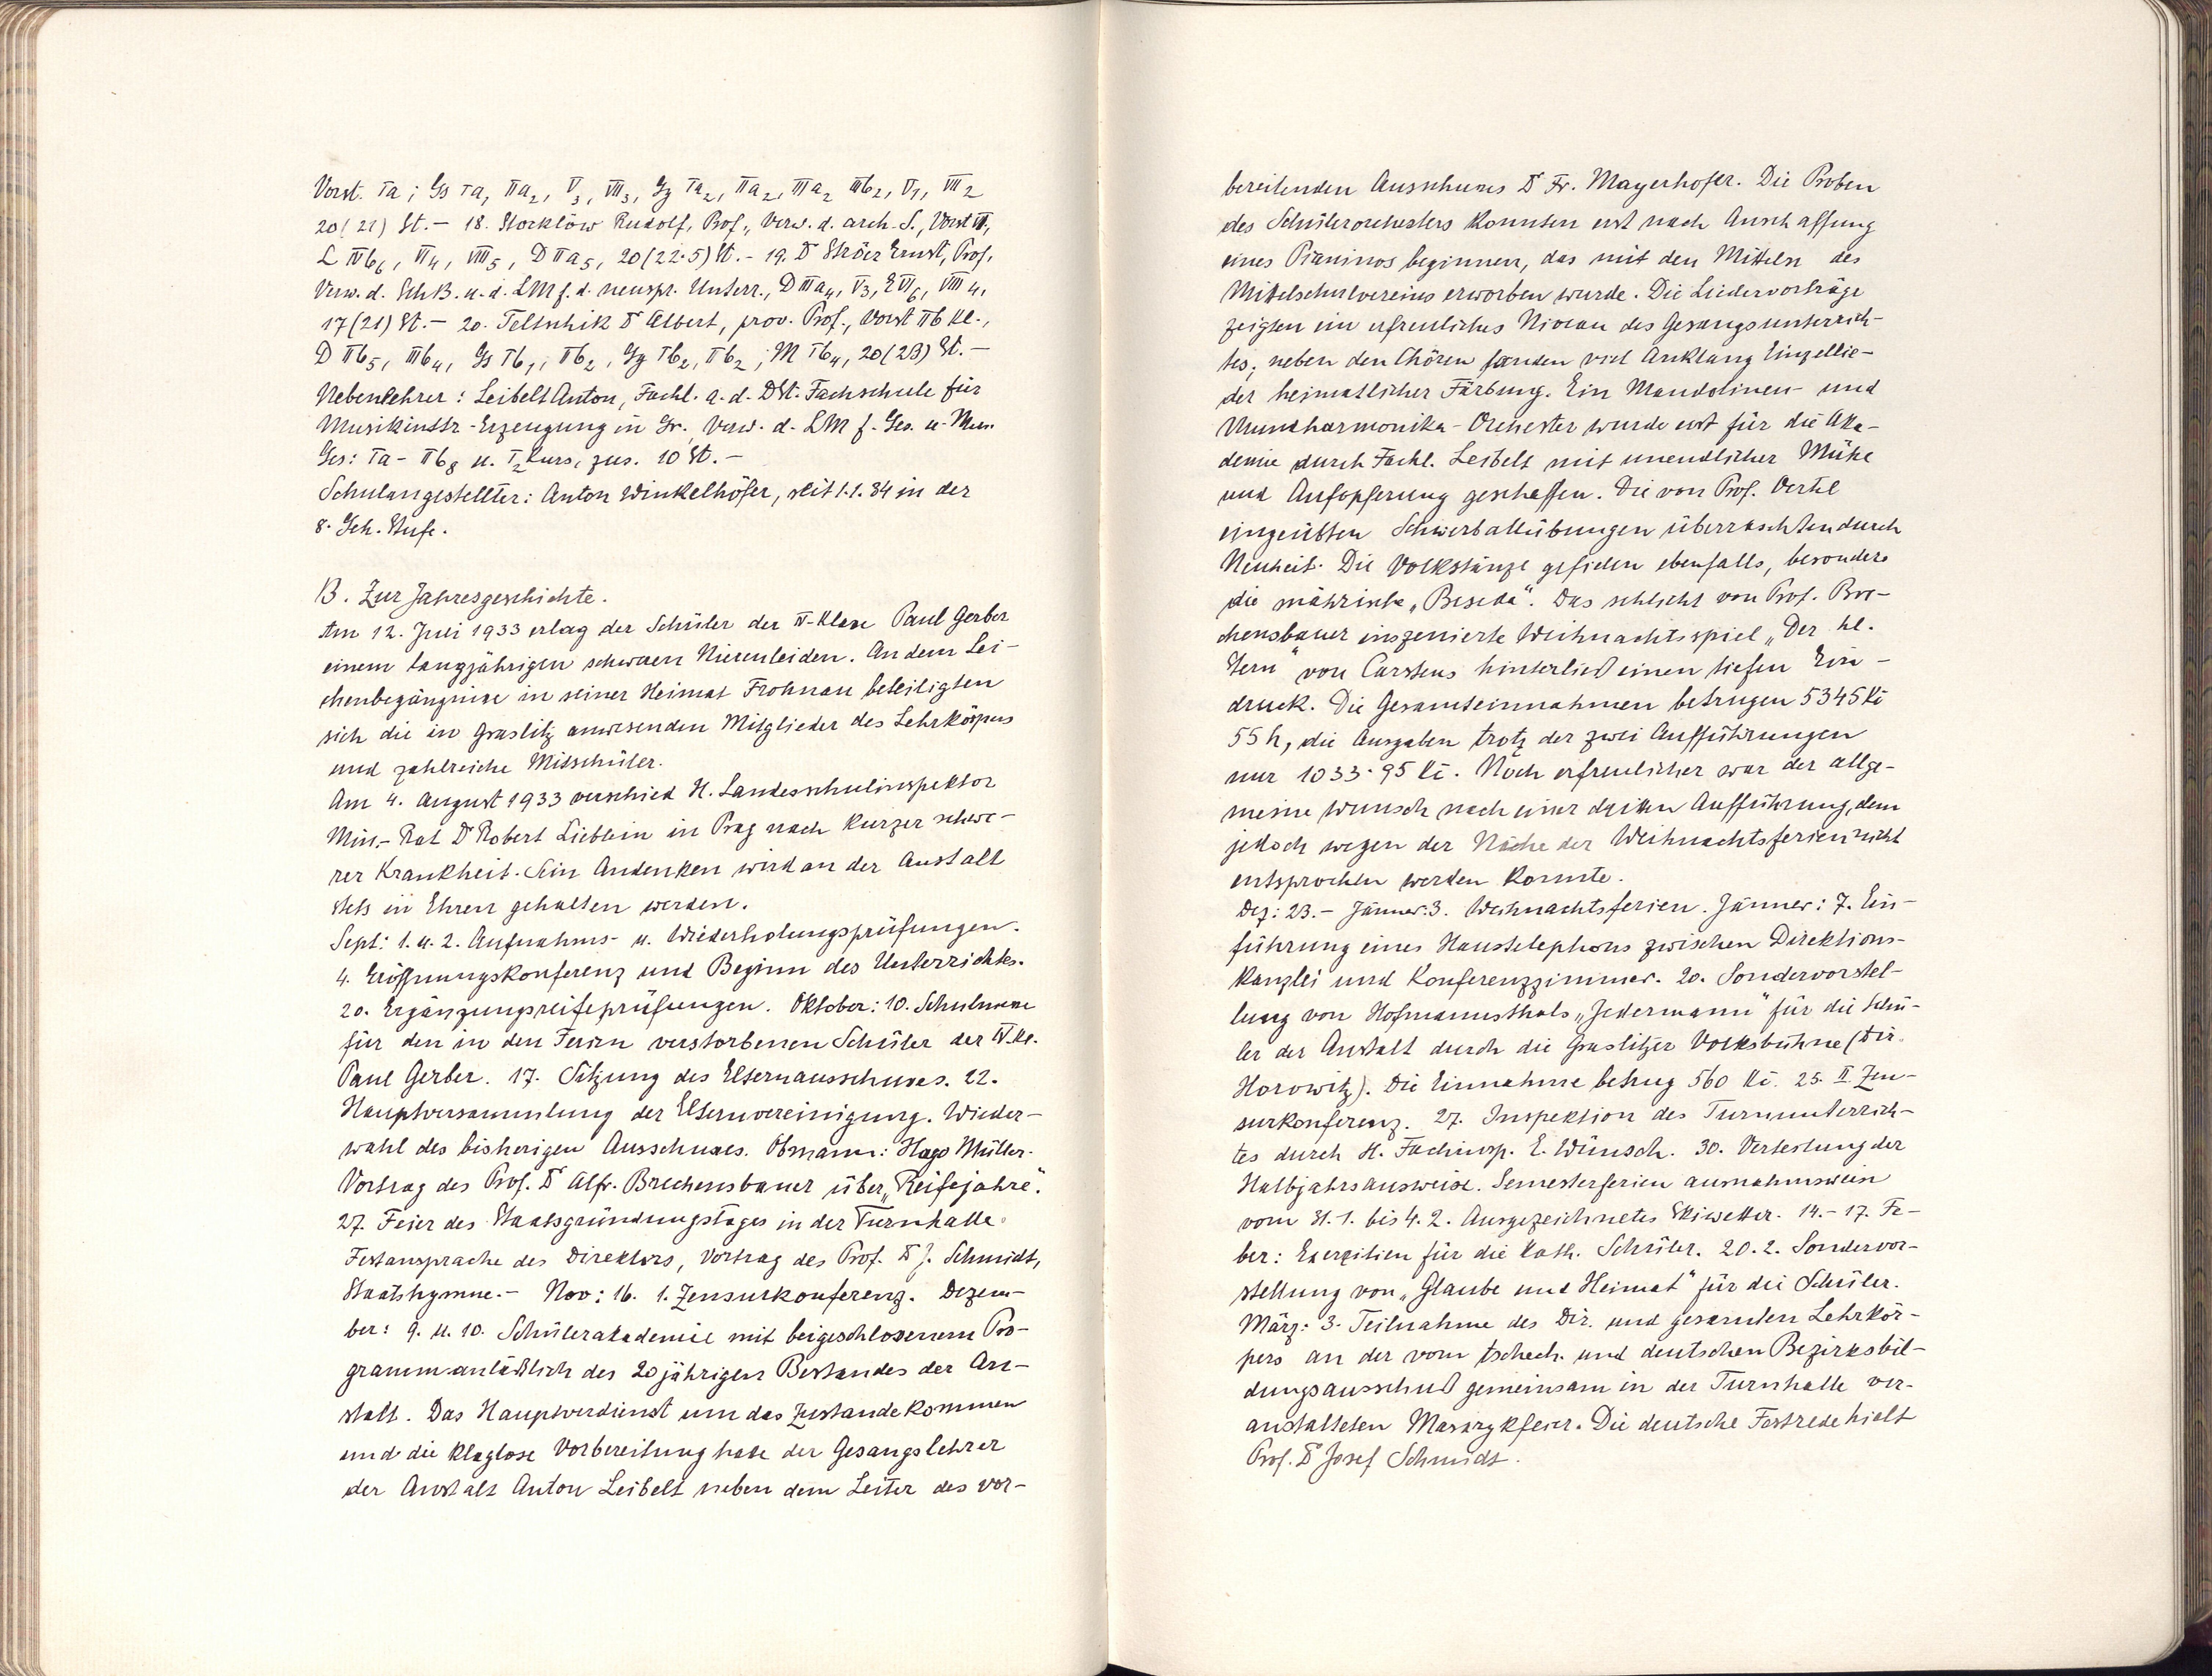 Vorst. Ia; Gs Ia, IIa₂, V₃, VII₃, Gg Ia₂, IIa₂, IIIa₂ IIIb₂, VI₁, VII₂
20(21) St.– 18. Storklöw Rudolf, Prof., Verw. d. arch. S., Vorst VI,
L IVb₆, VI₄, VIII₅, D IIa₅, 20(22·5) St.– 19. Dr Ströer Ernst, Prof.
Verw. d. SchB. u. d. LM f. d. neuspr. Unterr., D IIIa₄, V₃, E VI₆, VIII₄,
17(21) St.– 20. Teltschik Dr Albert, prov. Prof., Vorst IIb Kl.,
D IIb₅, IIIb₄, Gs Ib₁, IIb₂, Gg Ib₂, IIb₂; M Ib₄, 20(23) St.–
Nebenlehrer: Leibelt Anton, Fachl. a. d. DSt. Fachschule für
Musikinstr-Erzeugung in Gr. Verw. d. LM f. Ges. u. Mus.
Ges: Ia– IIb₈ u. I₂ Kurs, zus. 10 St.–
Schulangestellter: Anton Winkelhöfer, seit 1.1.34 in der
8. Geh. Stufe.
B. Zur Jahresgeschichte.
Am 12. Juli 1933 erlag der Schüler der IV. Klasse Paul Gerber
einem langjährigen schweren Nierenleiden. An dem Lei-
chenbegängnisse in seiner Heimat Frohnau beteiligten
sich die in Graslitz anwesenden Mitglieder des Lehrkörpers
und zahlreiche Mitschüler.
Am 4. August 1933 verschied H. Landesschulinspektor
Min.-Rat Dr Robert Lieblein in Prag nach kurzer schwe-
rer Krankheit. Sein Andenken wird an der Anstalt
stets in Ehren gehalten werden.
Sept: 1. u. 2. Aufnahms- u. Wiederholungsprüfungen.
4. Eröffnungskonferenz und Beginn des Unterrichtes.
20. Ergänzungsreifeprüfungen. Oktober: 10. Schulmesse
für den in den Ferien verstorbenen Schüler der IV. Kl.
Paul Gerber. 17. Sitzung des Elternausschusses. 22.
Hauptversammlung der Elternvereinigung. Wieder-
wahl des bisherigen Ausschusses. Obmann: Hugo Müller.
Vortrag des Prof. Dr Alfr. Brechensbauer über „Reifejahre“.
27. Feier des Staatsgründungstages in der Turnhalle.
Festansprache des Direktors, Vortrag des Prof. Dr J. Schmidt,
Staatshymne.– Nov: 16. 1. Zensurkonferenz. Dezem-
ber: 9. u. 10. Schülerakademie mit beigeschlossenem Pro-
gramm anläßlich des 20jährigen Bestandes der An-
stalt. Das Hauptverdienst um das Zustandekommen
und die klaglose Vorbereitung hatte der Gesangslehrer
der Anstalt Anton Leibelt neben dem Leiter des vor-
bereitenden Ausschusses Dr Fr. Mayerhofer. Die Proben
des Schülerorchesters konnten erst nach Anschaffung
eines Pianinos beginnen, das mit den Mitteln des
Mittelschulvereins erworben wurde. Die Liedervorträge
zeigten ein erfreuliches Niveau des Gesangsunterrich-
tes, neben den Chören fanden viel Anklang Einzellie-
der heimatlicher Färbung. Ein Mandolinen- und
Mundharmonika-Orchester wurde erst für die Aka-
demie durch Fachl. Leibelt mit unendlicher Mühe
und Aufopferung geschaffen. Die von Prof. Oertel
eingeübten Schwerballübungen überraschten durch
Neuheit. Die Volkstänze gefielen ebenfalls, besonders
die mährische „Beseda“. Das schlicht von Prof. Bre-
chensbauer inszenierte Weihnachtsspiel „Der hl.
Stern“ von Carstens hinterließ einen tiefen Ein-
druck. Die Gesamteinnahmen betrugen 5345 Kč
55 h, die Ausgaben trotz der zwei Aufführungen
nur 1033·95 Kč. Noch erfreulicher war der allge-
meine Wunsch nach einer dritten Aufführung, dem
jedoch wegen der Nähe der Weihnachtsferien nicht
entsprochen werden konnte.
Dez: 23.– Jänner: 3. Weihnachtsferien. Jänner: 7. Ein-
führung eines Haustelephons zwischen Direktions-
kanzlei und Konferenzzimmer. 20. Sondervorstel-
lung von Hofmannsthals „Jedermann“ für die Schü-
ler der Anstalt durch die Graslitzer Volksbühne (Dir.
Horowitz). Die Einnahme betrug 560 Kč. 25. II Zen-
surkonferenz. 27. Inspektion des Turnunterrich-
tes durch H. Fachinsp. E. Wünsch. 30. Verteilung der
Halbjahrsausweise. Semesterferien ausnahmsweise
vom 31.1. bis 4.2. Ausgezeichnetes Skiwetter. 14.– 17. Fe-
ber: Exerzitien für die kath. Schüler. 20.2. Sondervor-
stellung von „Glaube und Heimat“ für die Schüler.
März: 3. Teilnahme des Dir. und gesamten Lehrkör-
pers an der vom tschech. und deutschen Bezirksbil-
dungsausschuß gemeinsam in der Turnhalle ver-
anstalteten Masarykfeier. Die deutsche Festrede hielt
Prof. Dr Josef Schmidt.